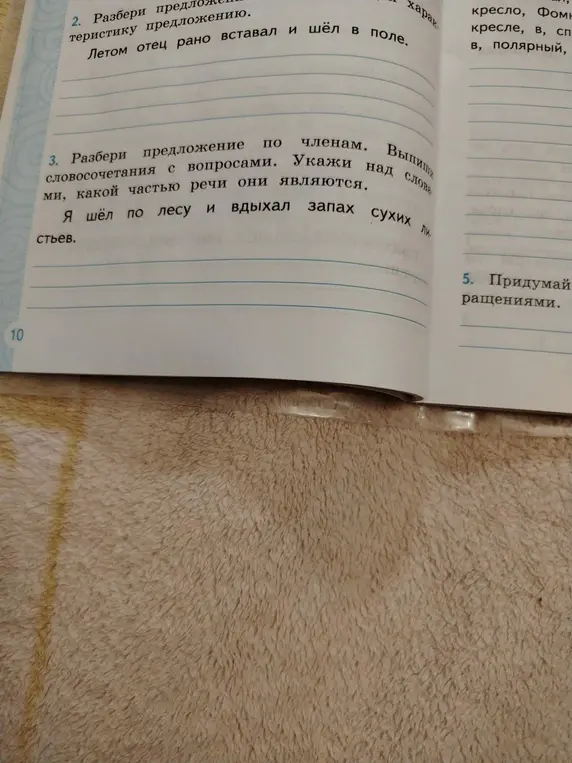 2. Разбери
теристику предложению.
Летом отец рано вставал и шёл в поле.
3. Разбери предложение по членам. Выпиши
словосочетания с вопросами. Укажи над слова
ми, какой частью речи они являются.
Я шёл по лесу и вдыхал запах сухих ли-
стьев.
10
кресло,
кресле, в,
в, полярный,
5. Придумай
ращениями.